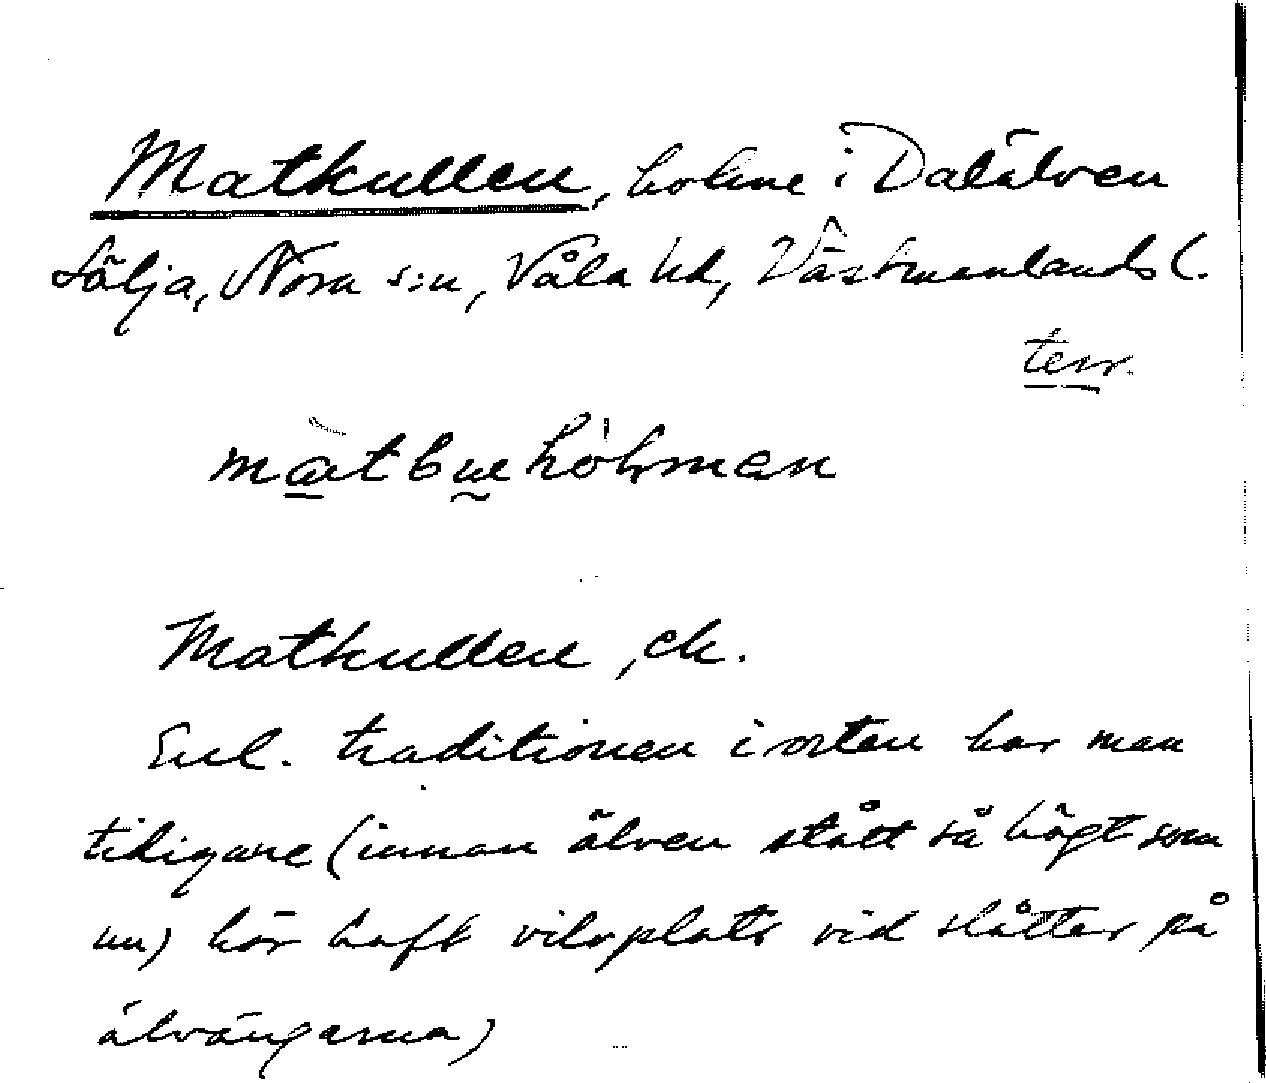 Matkullen, holme i Dalälven
Sälja, Nora s:n, Våla hd, Västmanlands l.
terr.
Matkullen, ek.
Enl. traditionen i orten har man
tidigare (innan älven stått så högt som
nu) här haft viloplats vid slåtter på
älvängarna)